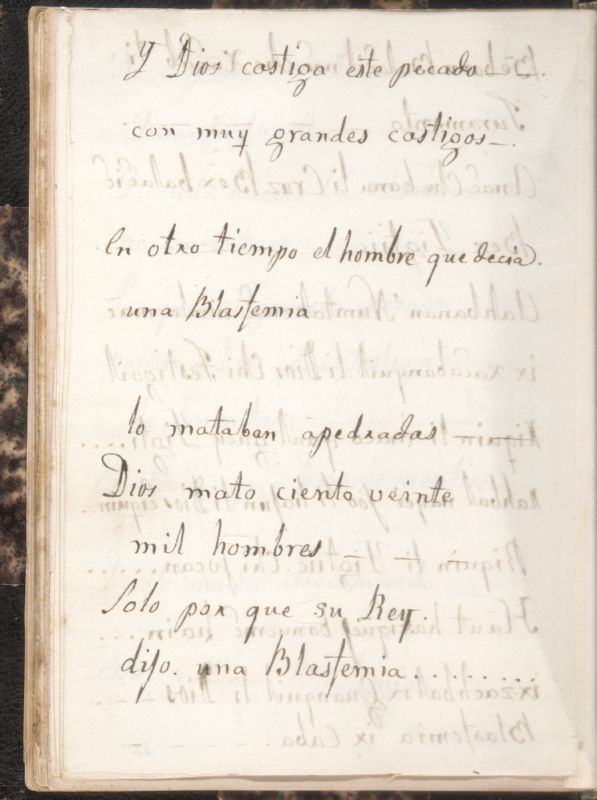 Y Dios castiga este pecado — .
con muy grandes castigos — .
En otro tiempo el hombre que decia.
una Blasfemia
lo mataban apedradas —
Dios mato ciento veinte
mil hombres — —
Solo por que su Rey.
dijo. una Blasfemia . . . . . . . .